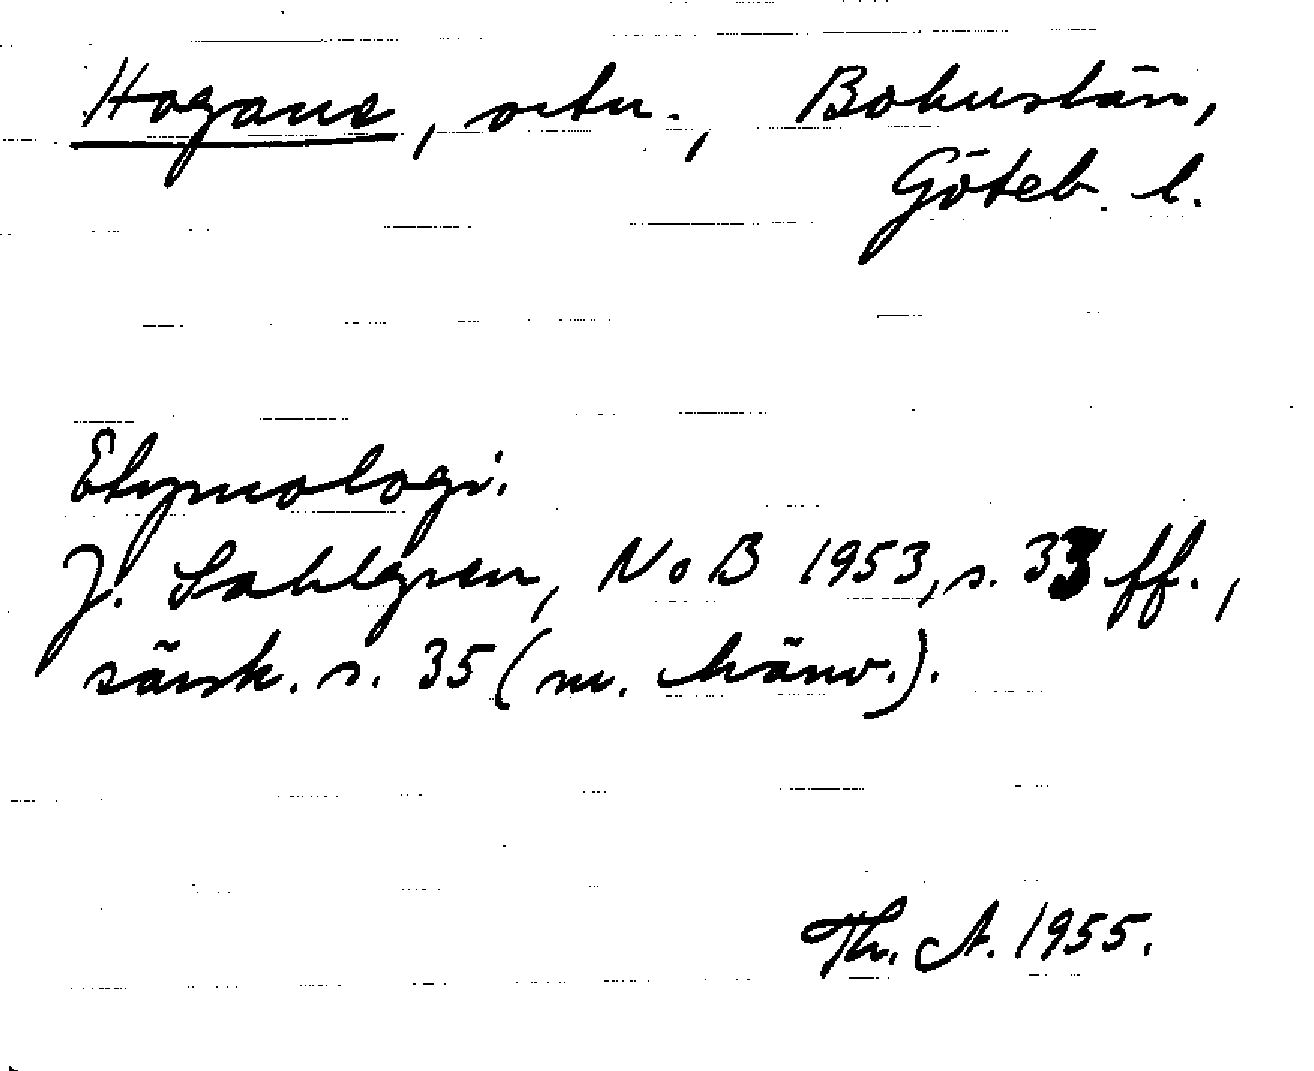 Hogane, ortn., Bohuslän,
Göteb. l.
Etymologi.
J. Sahlgren, NoB 1953, s. 33 ff.,
särsk. s. 35 (m. hänv.).
Th. A. 1955.